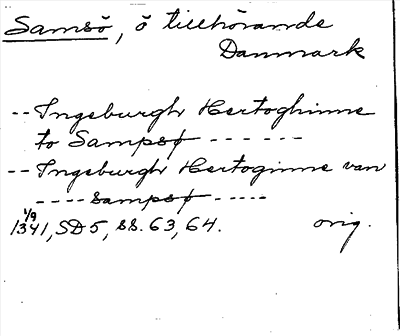 Samsö, ö tillhörande
Danmark
-- Ingeburgh Hertoghinne
to Sampsø - - - - - -
-- Ingeburgh Hertoginne van
- - - - Sampsø - - - - -
1/9
1341, SD 5, ss. 63, 64. orig.